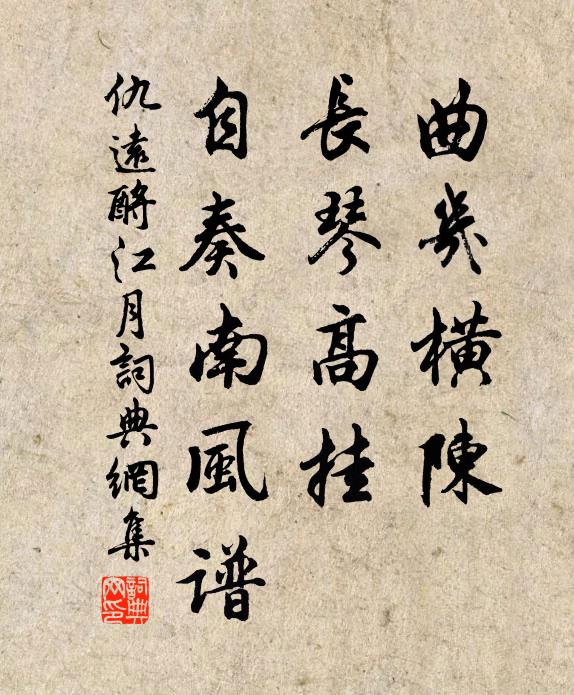 曲幾橫陳
長琴高挂
自奏南風譜
仇遠酹江月詞典網集
詞典網印